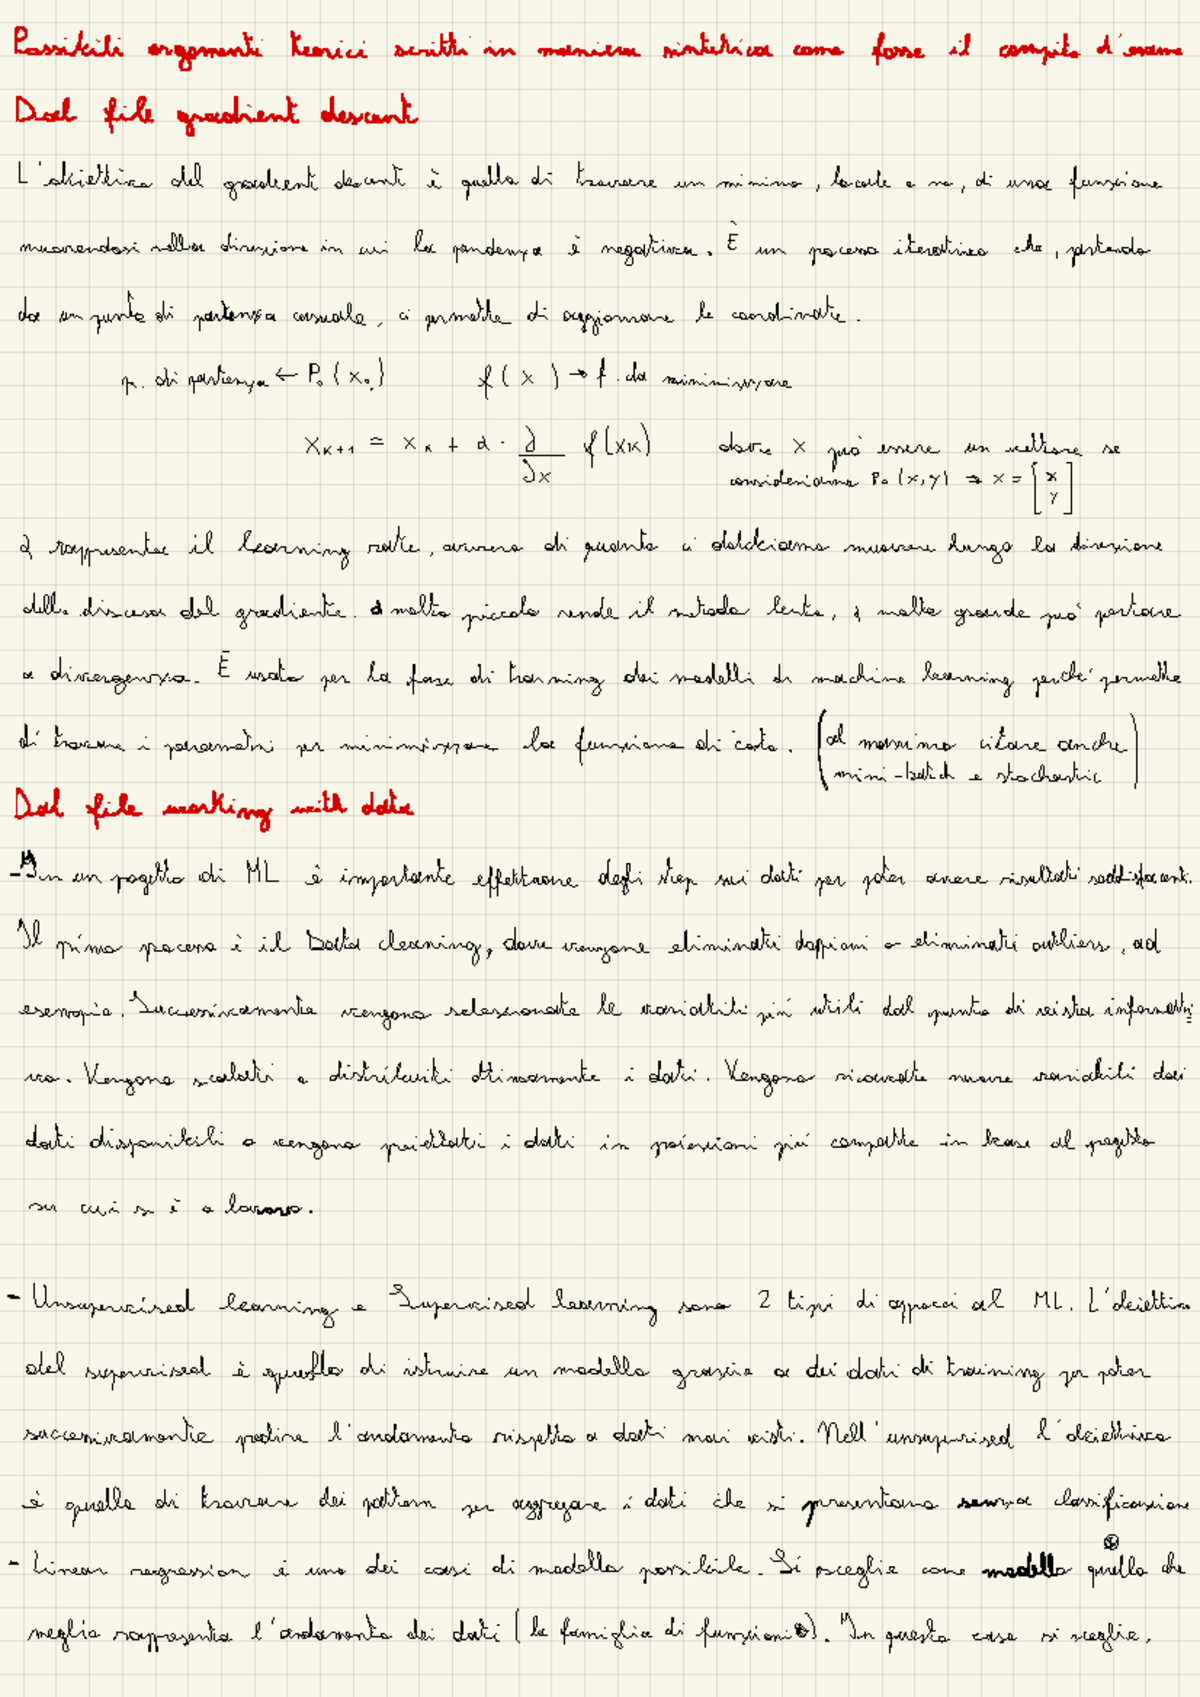 Possibili argomenti teorici scritti in maniera sintetica come fosse il compito d'esame
Dal file gradient descent
L'obiettivo del gradient descent è quello di trovare un minimo, locale o no, di una funzione
muovendosi nella direzione in cui la pendenza è negativa. È un processo iterativo che, partendo
da un punto di partenza casuale, ci permette di aggiornare le coordinate.
p. di partenza ← P₀ (x₀) f(x) → f. da minimizzare
x_{k+1} = x_k + α · ∂/∂x f(xk) dove x può essere un vettore se
consideriamo P₀ (x,y) ⇒ x = [x y]
α rappresenta il learning rate, ovvero di quanto ci dobbiamo muovere lungo la direzione
della discesa del gradiente. α molto piccolo rende il metodo lento, α molto grande può portare
a divergenza. È usato per la fase di training dei modelli di machine learning perché permette
di trovare i parametri per minimizzare la funzione di costo. (al massimo citare anche
mini-batch e stochastic)
Dal file working with data
- In un progetto di ML è importante effettuare degli step sui dati per poter avere risultati soddisfacenti.
Il primo processo è il Data cleaning, dove vengono eliminati doppioni o eliminati outliers, ad
esempio. Successivamente vengono selezionate le variabili più utili dal punto di vista informati
vo. Vengono scalati e distribuiti ottimamente i dati. Vengono ricavate nuove variabili dai
dati disponibili o vengono proiettati i dati in proiezioni più compatte in base al progetto
su cui si è a lavoro.
- Unsupervised learning e Supervised learning sono 2 tipi di approcci al ML. L'obiettivo
del supervised è quello di istruire un modello grazie a dei dati di training per poter
successivamente predire l'andamento rispetto a dati mai visti. Nell'unsupervised l'obiettivo
è quello di trovare dei pattern per aggregare i dati che si presentano senza classificazione
- Linear regression è uno dei casi di modello possibile. Si sceglie come modello quello che
meglio rappresenta l'andamento dei dati (la famiglia di funzioni). In questo caso si sceglie,